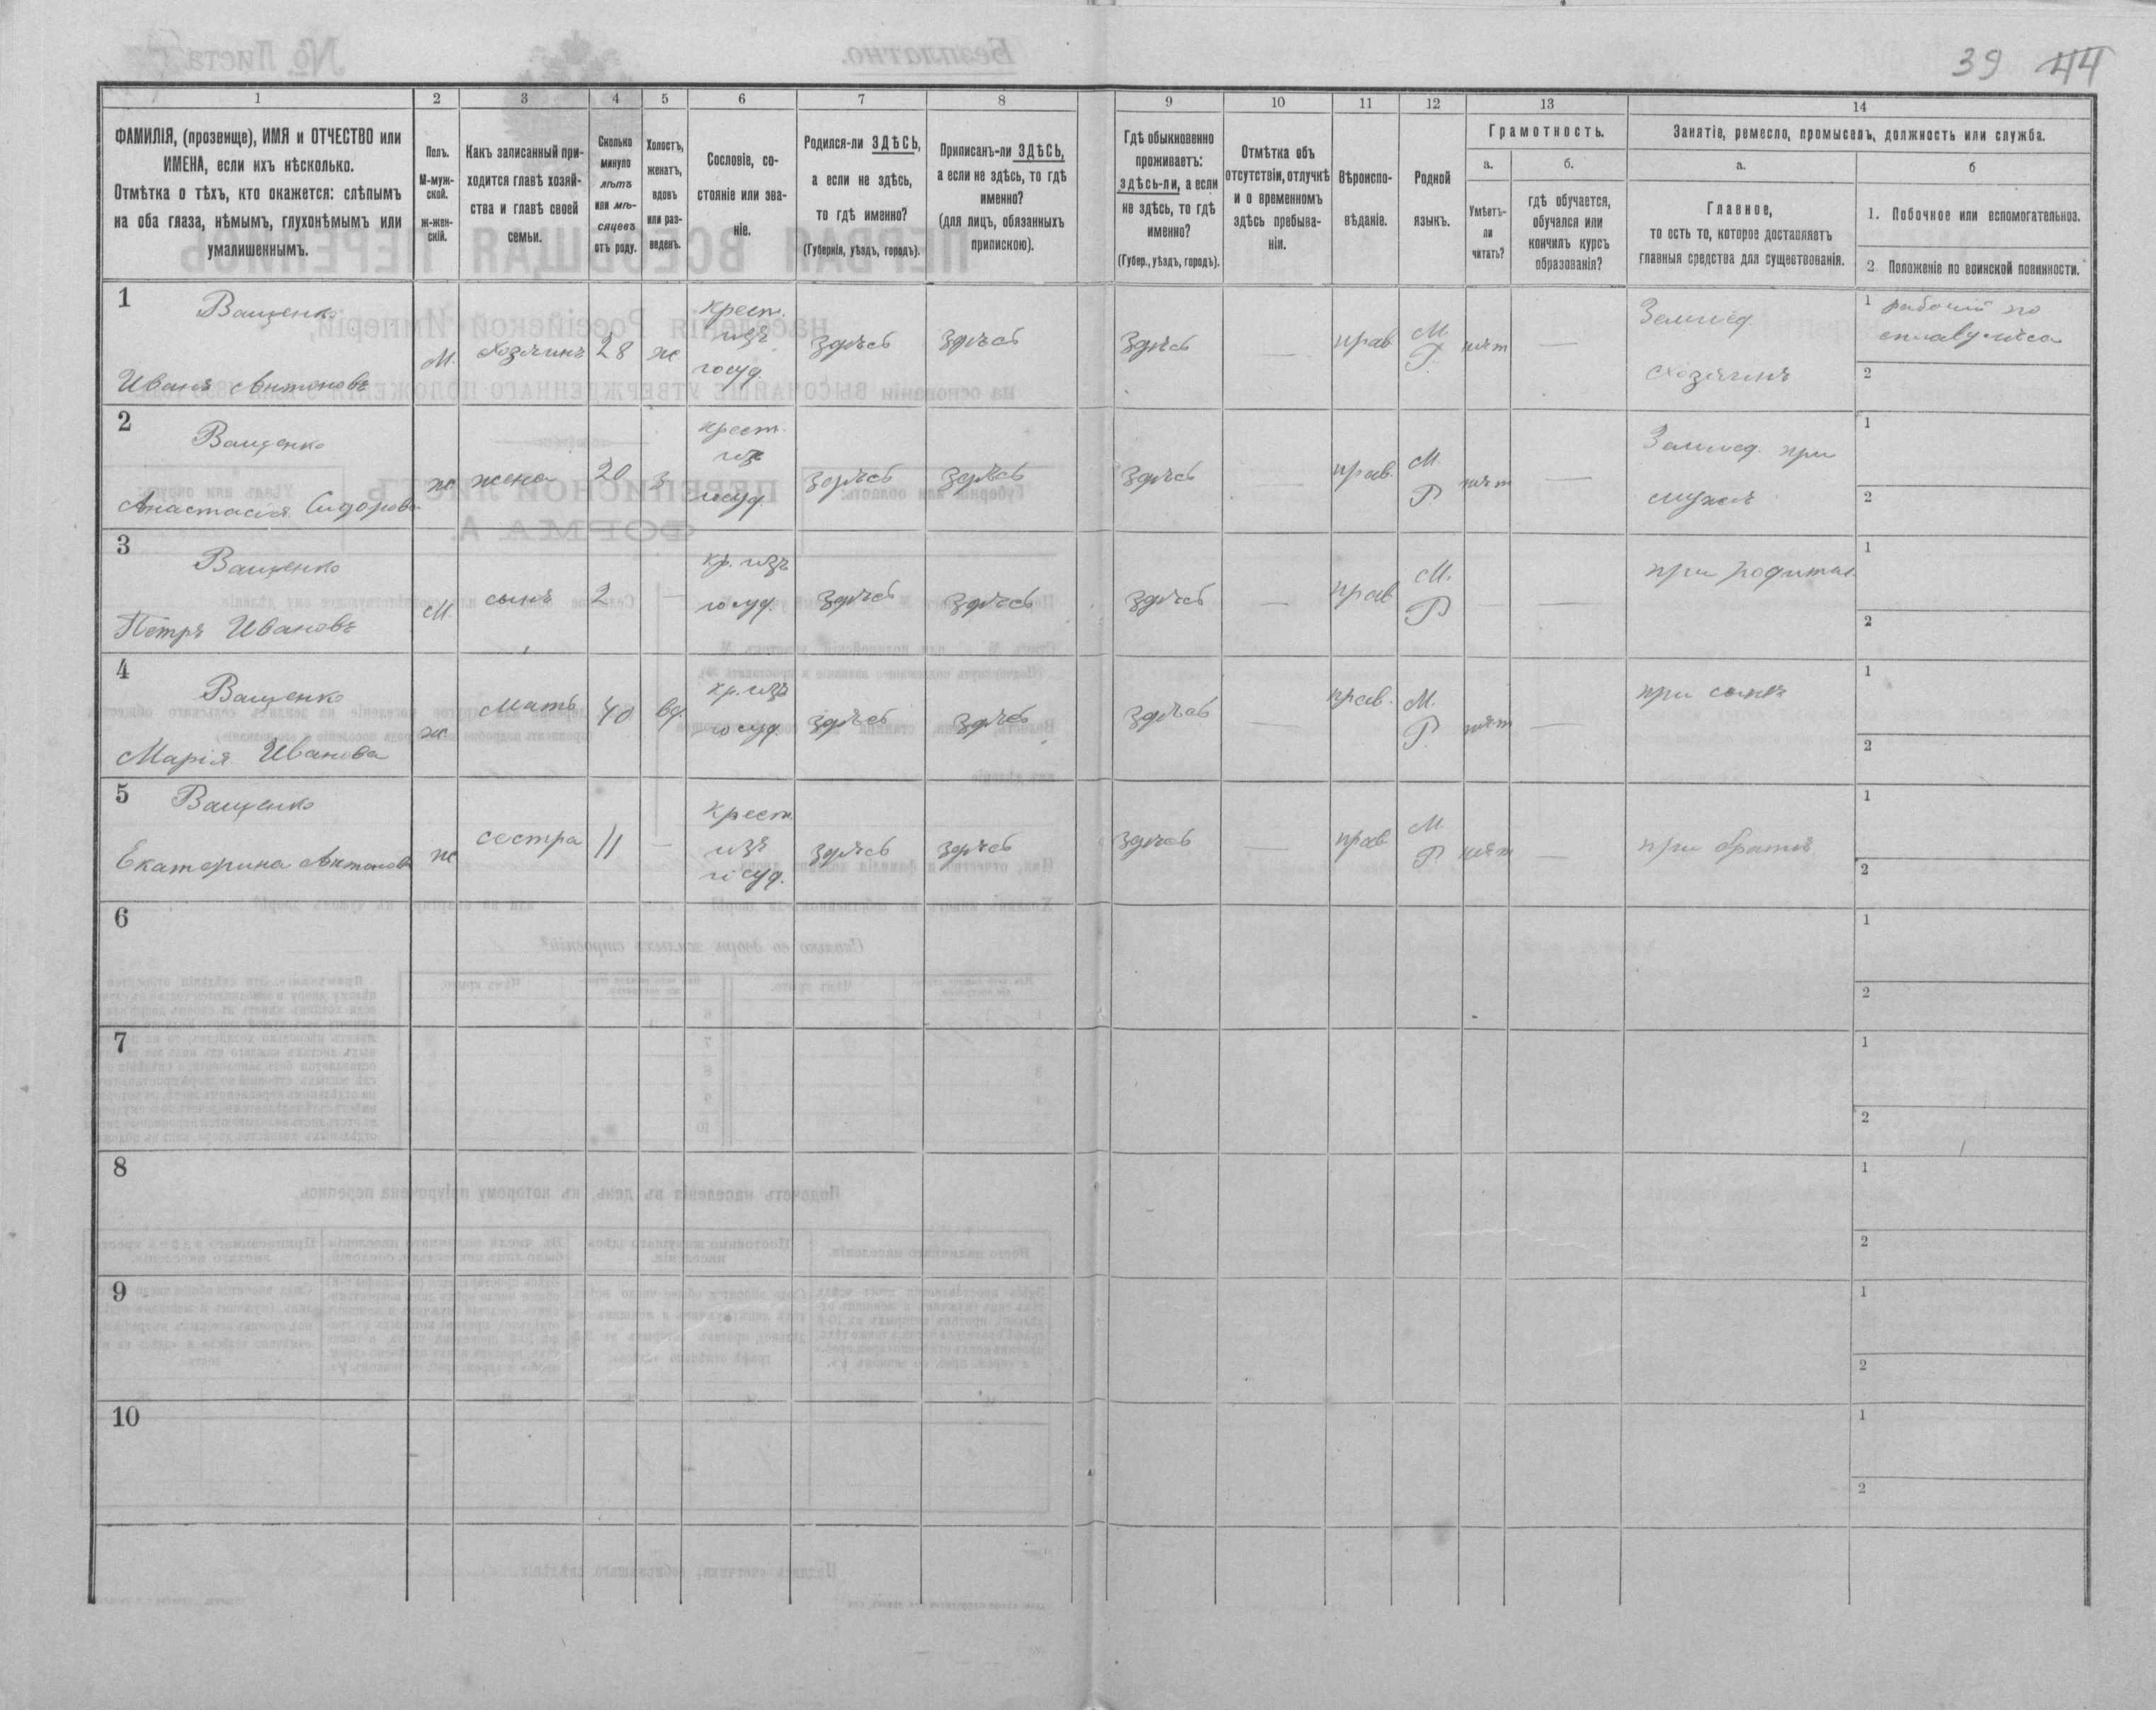 39 44
1 2 3 4 5 6 7 8 9 10 11 12 13 14
ФАМИЛІЯ, (прозвище), ИМЯ и ОТЧЕСТВО или
ИМЕНА, если ихъ нѣсколько.
Отмѣтка о тѣхъ, кто окажется: слѣпымъ
на оба глаза, нѣмымъ, глухонѣмымъ или
умалишеннымъ.
Полъ.
М-муж-
ской.
ж-жен-
скій.
Какъ записанный при-
ходится главѣ хозяй-
ства и главѣ своей
семьи.
Сколько
минуло
лѣтъ
или мѣ-
сяцевъ
отъ роду.
Холостъ,
женатъ,
вдовъ
или раз-
веденъ.
Сословіе, со-
стояніе или зва-
ніе.
Родился-ли ЗДѢСЬ,
а если не здѣсь,
то гдѣ именно?
(Губернія, уѣздъ, городъ).
Приписанъ-ли ЗДѢСЬ,
а если не здѣсь, то гдѣ
именно?
(для лицъ, обязанныхъ
припискою).
Гдѣ обыкновенно
проживаетъ:
здѣсь-ли, а если
не здѣсь, то гдѣ
именно?
(Губер., уѣздъ, городъ).
Отмѣтка объ
отсутствіи, отлучкѣ
и о временномъ
здѣсь пребыва-
ніи.
Вѣроиспо-
вѣданіе.
Родной
языкъ.
Грамотность.
а.
Умѣетъ-
ли
читать?
б.
гдѣ обучается,
обучался или
кончилъ курсъ
образованія?
Занятіе, ремесло, промыселъ, должность или служба.
а.
Главное,
то есть то, которое доставляетъ
главныя средства для существованія.
б
1. Побочное или вспомогательноз.
2. Положеніе по воинской повинности.
1
Ващенко
Иванъ Антоновъ
М.
хозяинъ
28
ж
крест.
изъ
госуд.
здѣсь
здѣсь
здѣсь
—
прав
М.
Р.
нѣт
—
Землед.
хозяинъ
1 рабочій по
сплаву лѣса
2
2
Ващенко
Анастасія Сидорова
ж
жена
20
з
крест.
изъ
госуд.
здѣсь
здѣсь
здѣсь
—
прав.
М.
Р.
нѣт
—
Землед. при
мужѣ
1
2
3
Ващенко
Петръ Ивановъ
М.
сынъ
2
—
кр. изъ
госуд.
здѣсь
здѣсь
здѣсь
—
прав
М.
Р
—
—
при родител.
1
2
4
Ващенко
Марія Иванова
ж
мать
40
вд.
кр. изъ
госуд
здѣсь
здѣсь
здѣсь
—
прав.
М.
Р.
нѣт
—
при сынѣ
1
2
5
Ващенко
Екатерина Антонова
ж
сестра
11
—
крест.
изъ
госуд.
здѣсь
здѣсь
здѣсь
—
прав.
М
Р
нѣт
—
при братѣ
1
2
6
1
2
7
1
2
8
1
2
9
1
2
10
1
2